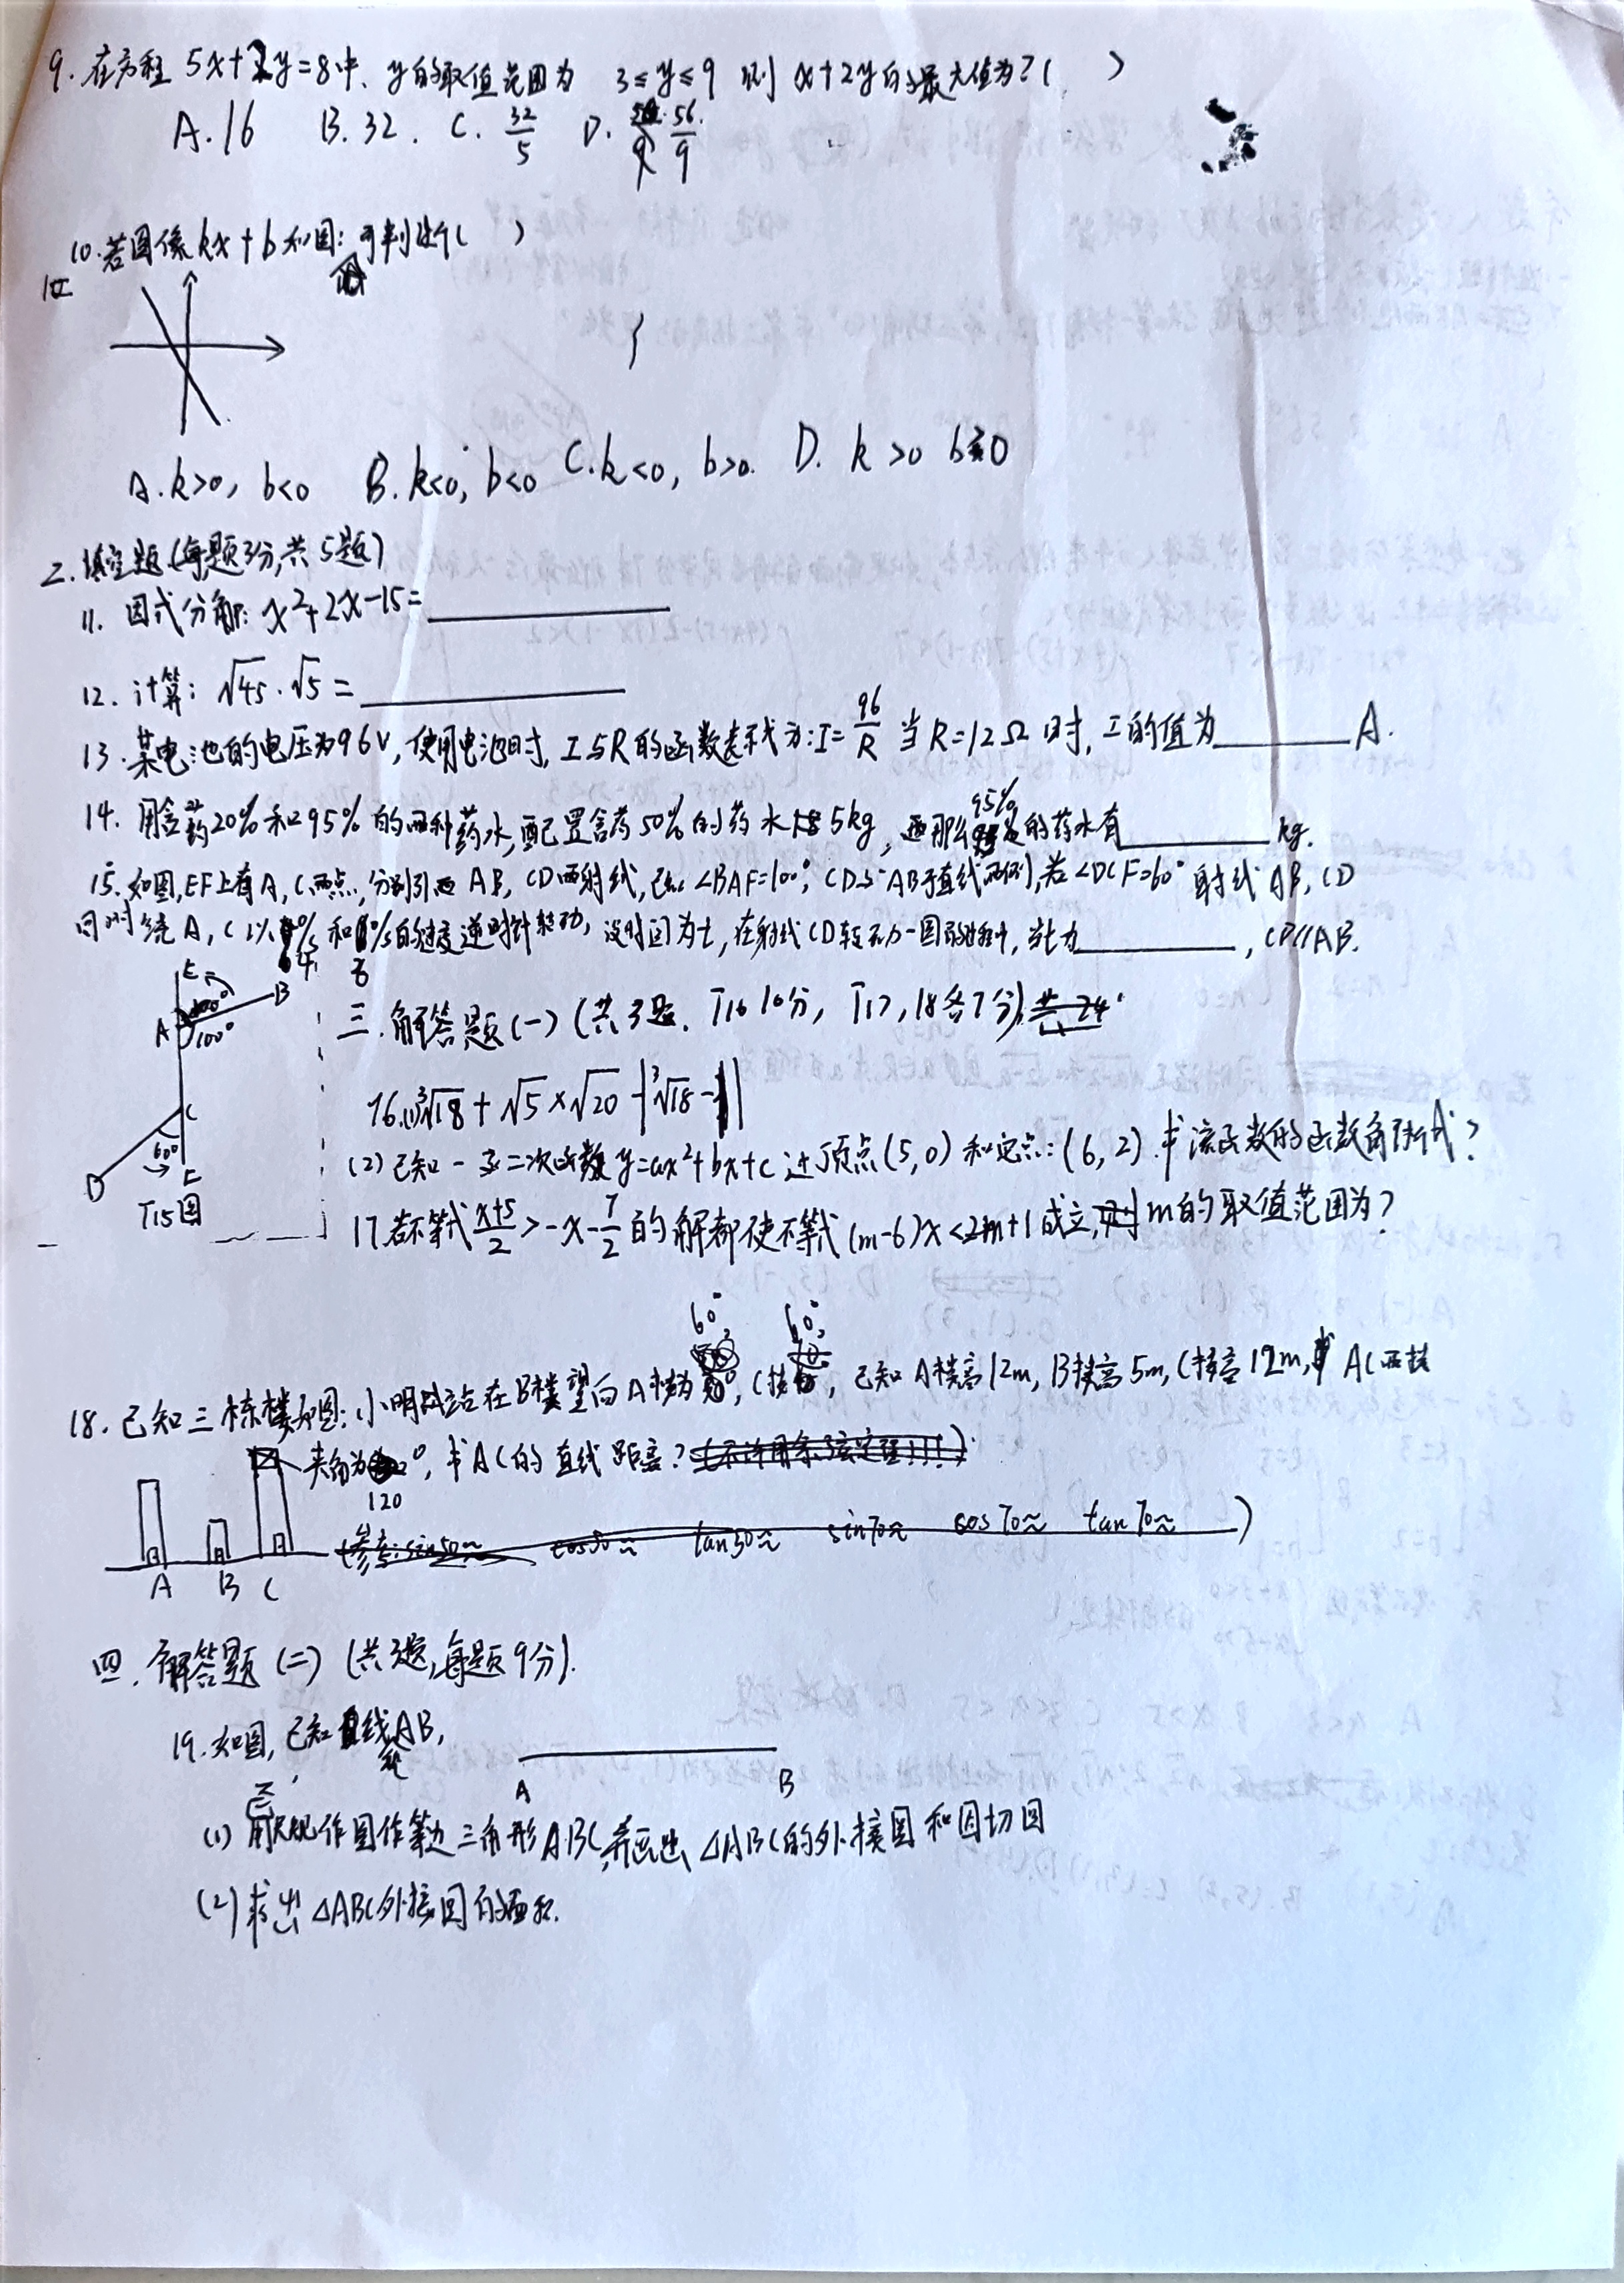 9. 在方程 5x+2y=8中, y的取值范围为 3≤y≤9 则 x+2y的最大值为?( )
A.16 B.32. C. 32/5 D. 56/9
10.若图像kx+b如图: 可判断( )
A.k>0, b<0 B.k<0, b<0 C.k<0, b>0. D. k>0 b≥0
二.填空题(每题3分,共5题)
11. 因式分解: x²+2x-15=
12. 计算: √45·√5=
13.某电池的电压为96V,使用电池时, I与R的函数表示式为:I=96/R 当R=12Ω时, I的值为 A.
14. 用含药20%和95%的两种药水,配置含药50%的药水 5kg, 那么95%的药水有 kg.
15.如图,EF上有A,C两点,分别引两AB,CD两射线,已知∠BAF=100°, CD与AB于直线两侧,若∠DCF=60° 射线AB, CD
同时绕A,C以 和 的速度逆时针转动, 设时间为t,在射线CD转动一圆 , 当t为 , CD//AB.
E
A B
100°
C
60°
D F
T15图
三.解答题(一)(共3题. T16 10分, T17,18各7分)
16.(1)³√18+√5×√20-|³√18-1|
(2)已知一 二次函数y=ax²+bx+c过顶点(5,0)和定点:(6,2).求该函数的函数解析式?
17.若不等式(x+5)/2>-x-7/2的解都使不等式(m-6)x<2m+1成立,则m的取值范围为?
60° 60°
18.已知三栋楼如图:小明站在B楼望向A楼为 , C楼 , 已知A楼高12m, B楼高5m, C楼高12m, AC两楼
夹角为120°, 求AC的直线距离?
(参考:sin50≈ cos50≈ tan50≈ sin70≈ cos70≈ tan70≈ )
A B C
四.解答题(二)(共3题,每题9分).
19.如图,已知线段AB,
A B
(1)用尺规作图作等边三角形ABC,并画出△ABC的外接圆和内切圆
(2)求出△ABC外接圆的面积.